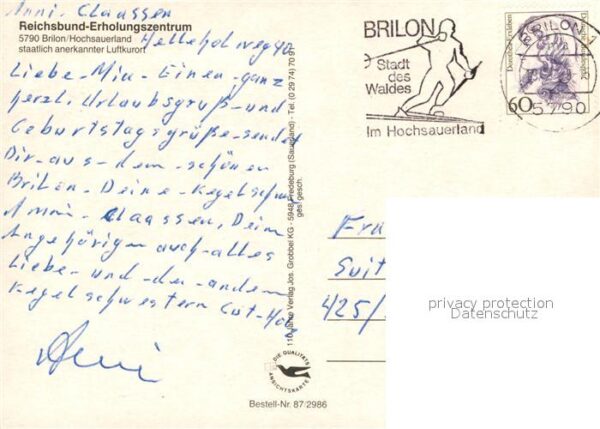 Anni. Claassen
Reichsbund-Erholungszentrum
5790 Brilon/Hochsauerland
staatlich anerkannter Luftkurort
Hellehohlweg 40
Liebe-Mia-Einen-ganz
herzl. Urlaubsgruß-und
Geburtstagsgrüße-sendet
Dir-aus-dem-schönen
Brilon-Deine-Kegelschw.
Anni-Claassen, Dein
Angehörigen auch-alles
Liebe-und-den-andern
Kegelschwestern Gut-Holz
Anni
110 Jahre Verlag Jos. Grobbel KG - 5948 Fredeburg (Sauerland) - Tel. (0 29 74) 70 91
ges. gesch.
DIE QUALITÄTS
ANSICHTSKARTE
Bestell-Nr. 87/2986
BRILON
Stadt
des
Waldes
Im Hochsauerland
BRILON 1
5790
60
Frau
Suit
425/
privacy protection
Datenschutz